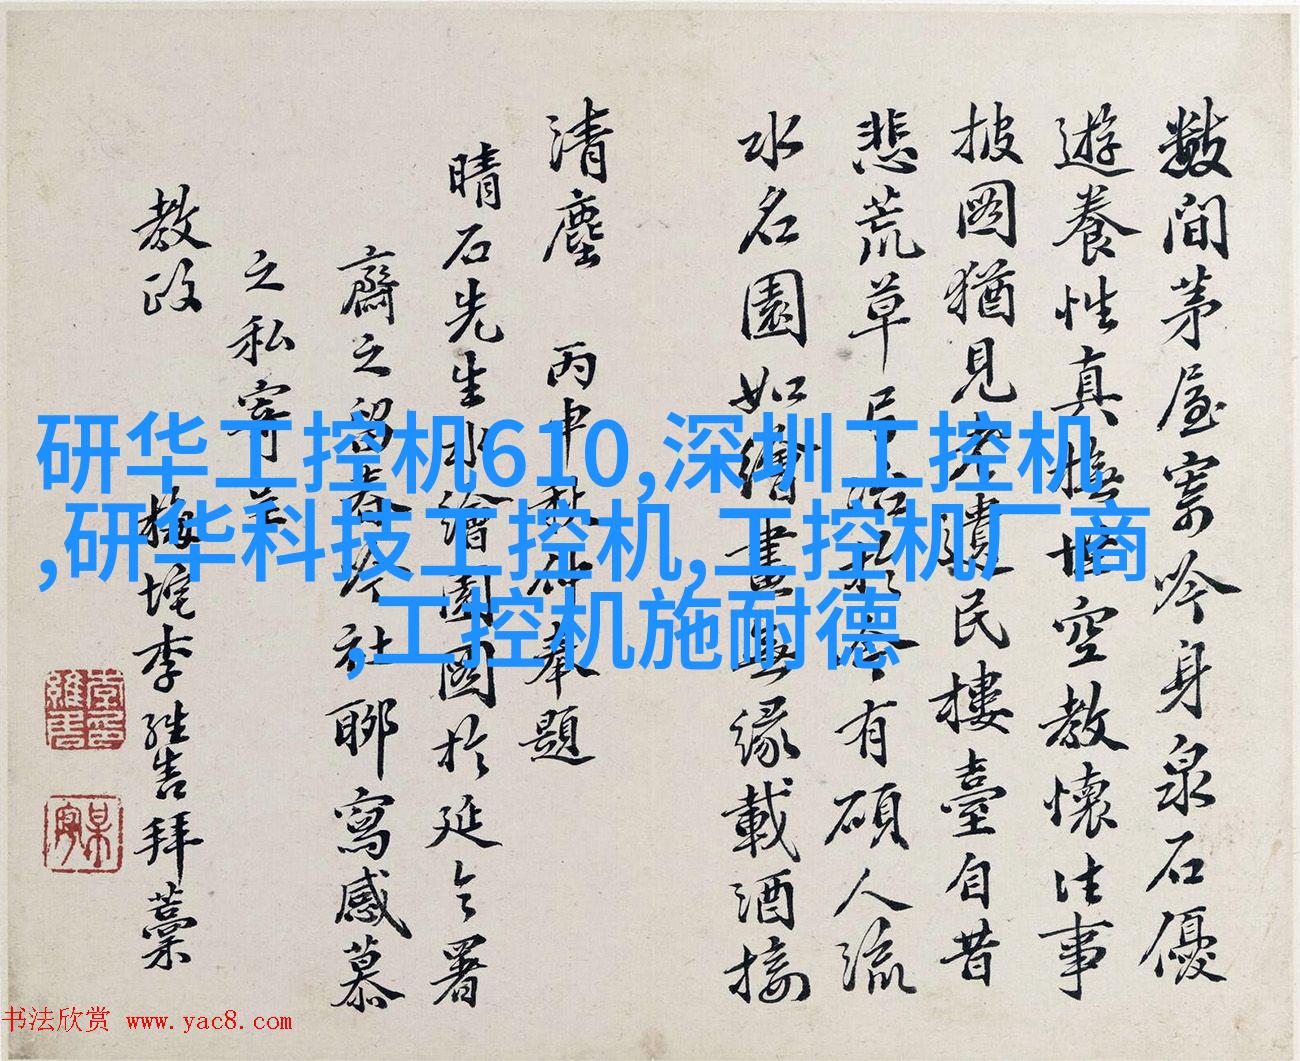 數間茅屋寄吟身泉石優
遊養性真撫空教懷往事
披圖猶見遺民樓臺自昔
悲荒草今有碩人流
水名園如繪畫無緣載酒接
清塵 丙申秋仲奉題
晴石先生水繪園圖於延令署
齋之留春吟社聊寫感慕
之私寄
教政 梅垞李拜藁
研华工控机610,深圳工控机
,研华科技工控机,工控机厂商
,工控机施耐德
书法欣赏 www.yac8.com